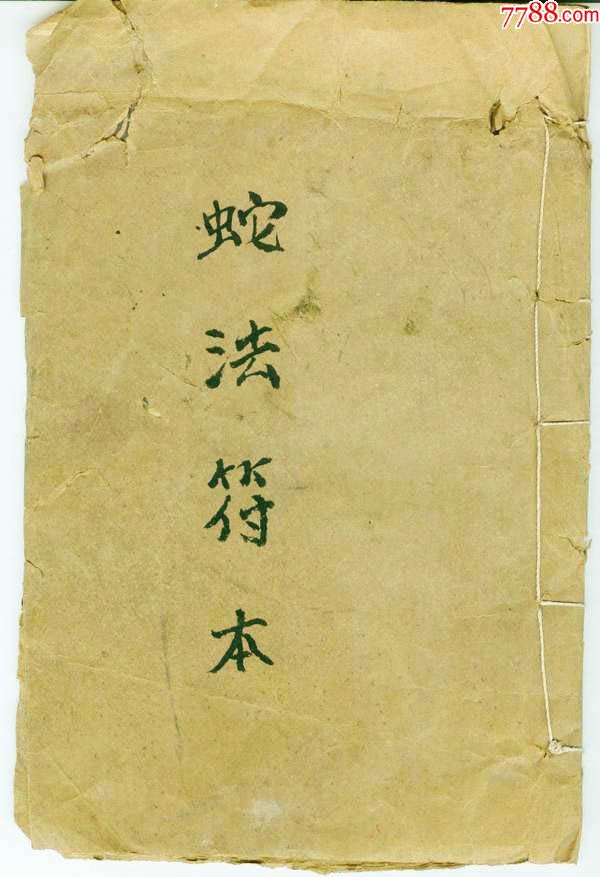 7788.com
蛇法符本